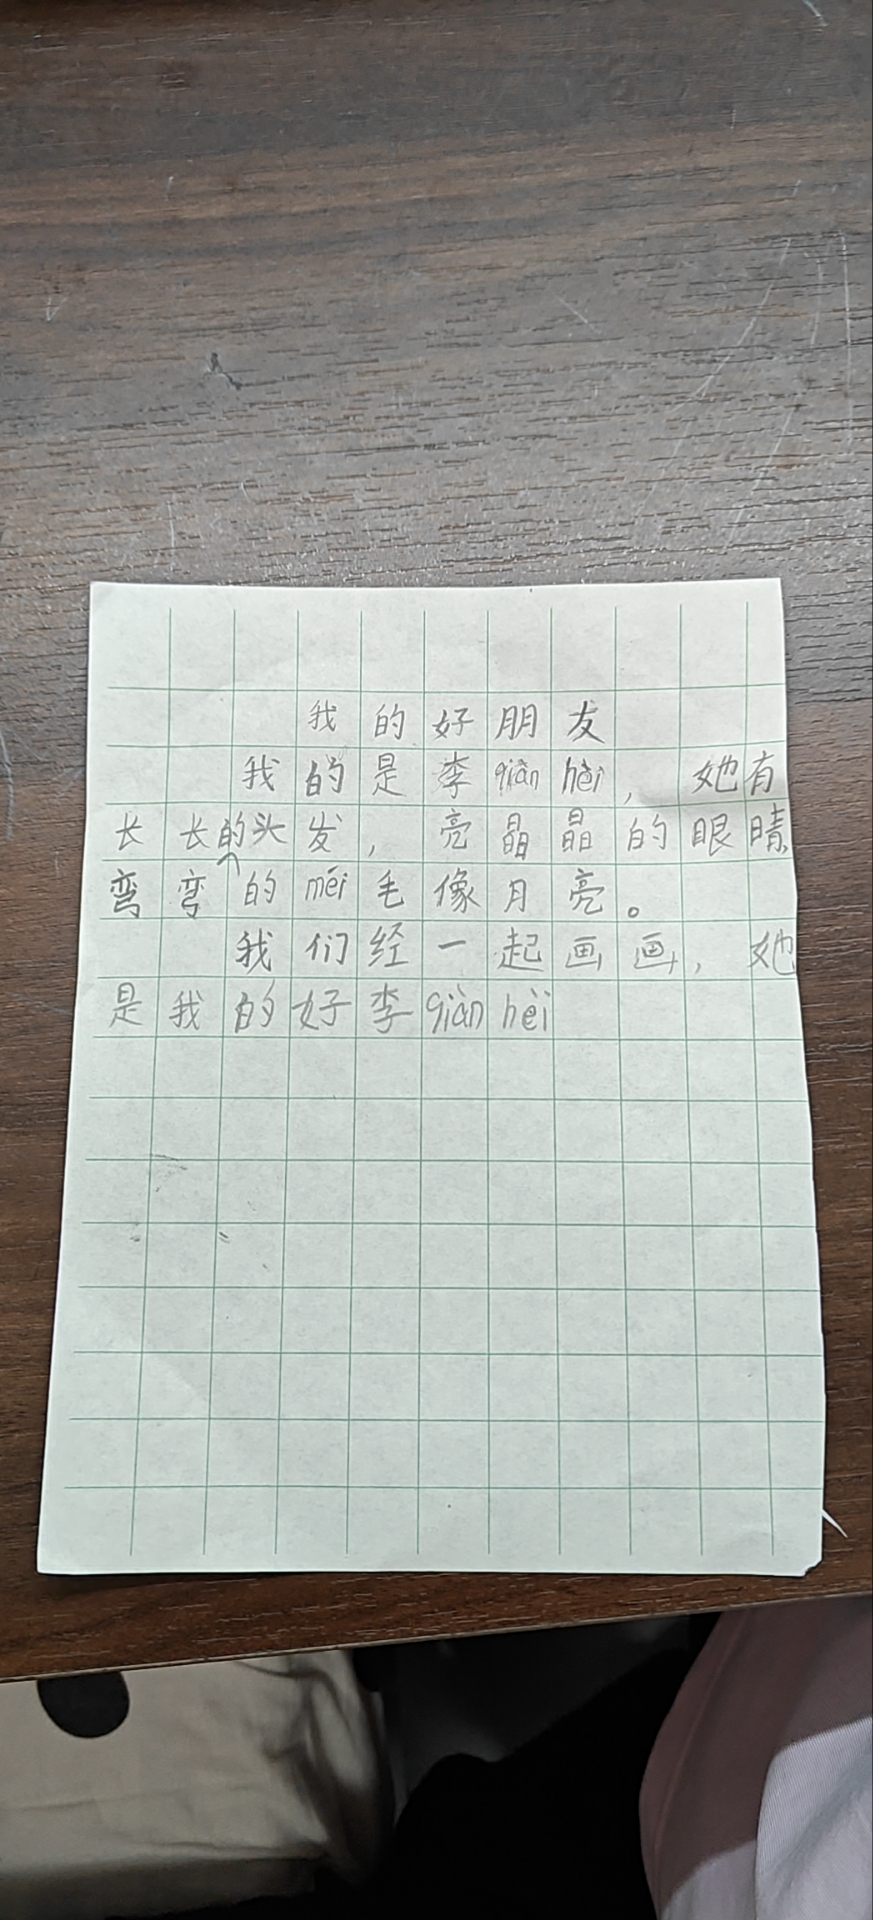 我的好朋友
我的是李qiàn hèi，她有
长长的头发，亮晶晶的眼睛
弯弯的méi毛像月亮。
我们经一起画画，她
是我的好李qiàn hèi